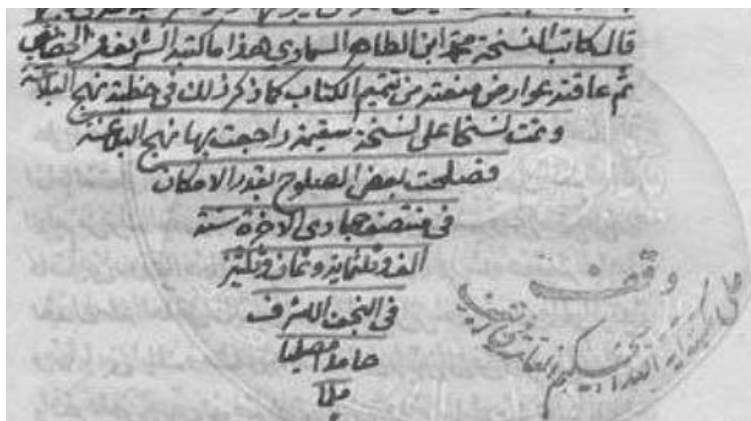 قال كاتب النسخة محمد ابن الطاهر السماوى هذا ما كتبه الشريف فى الخصائص
ثم عاقته عوارض منعته من تتميم الكتاب كما ذكر ذلك فى خطبة نهج البلاغة
وتمت نسخا على نسخة سقيمة راجعت بها نهج البلاغة
فصلحت بعض الصلوح بقدر الامكان
فى منتصف جمادى الاخرة سنة
الف وثلثماية وثمان وثلثين
فى النجف الاشرف
حامدا مصليا
وقف